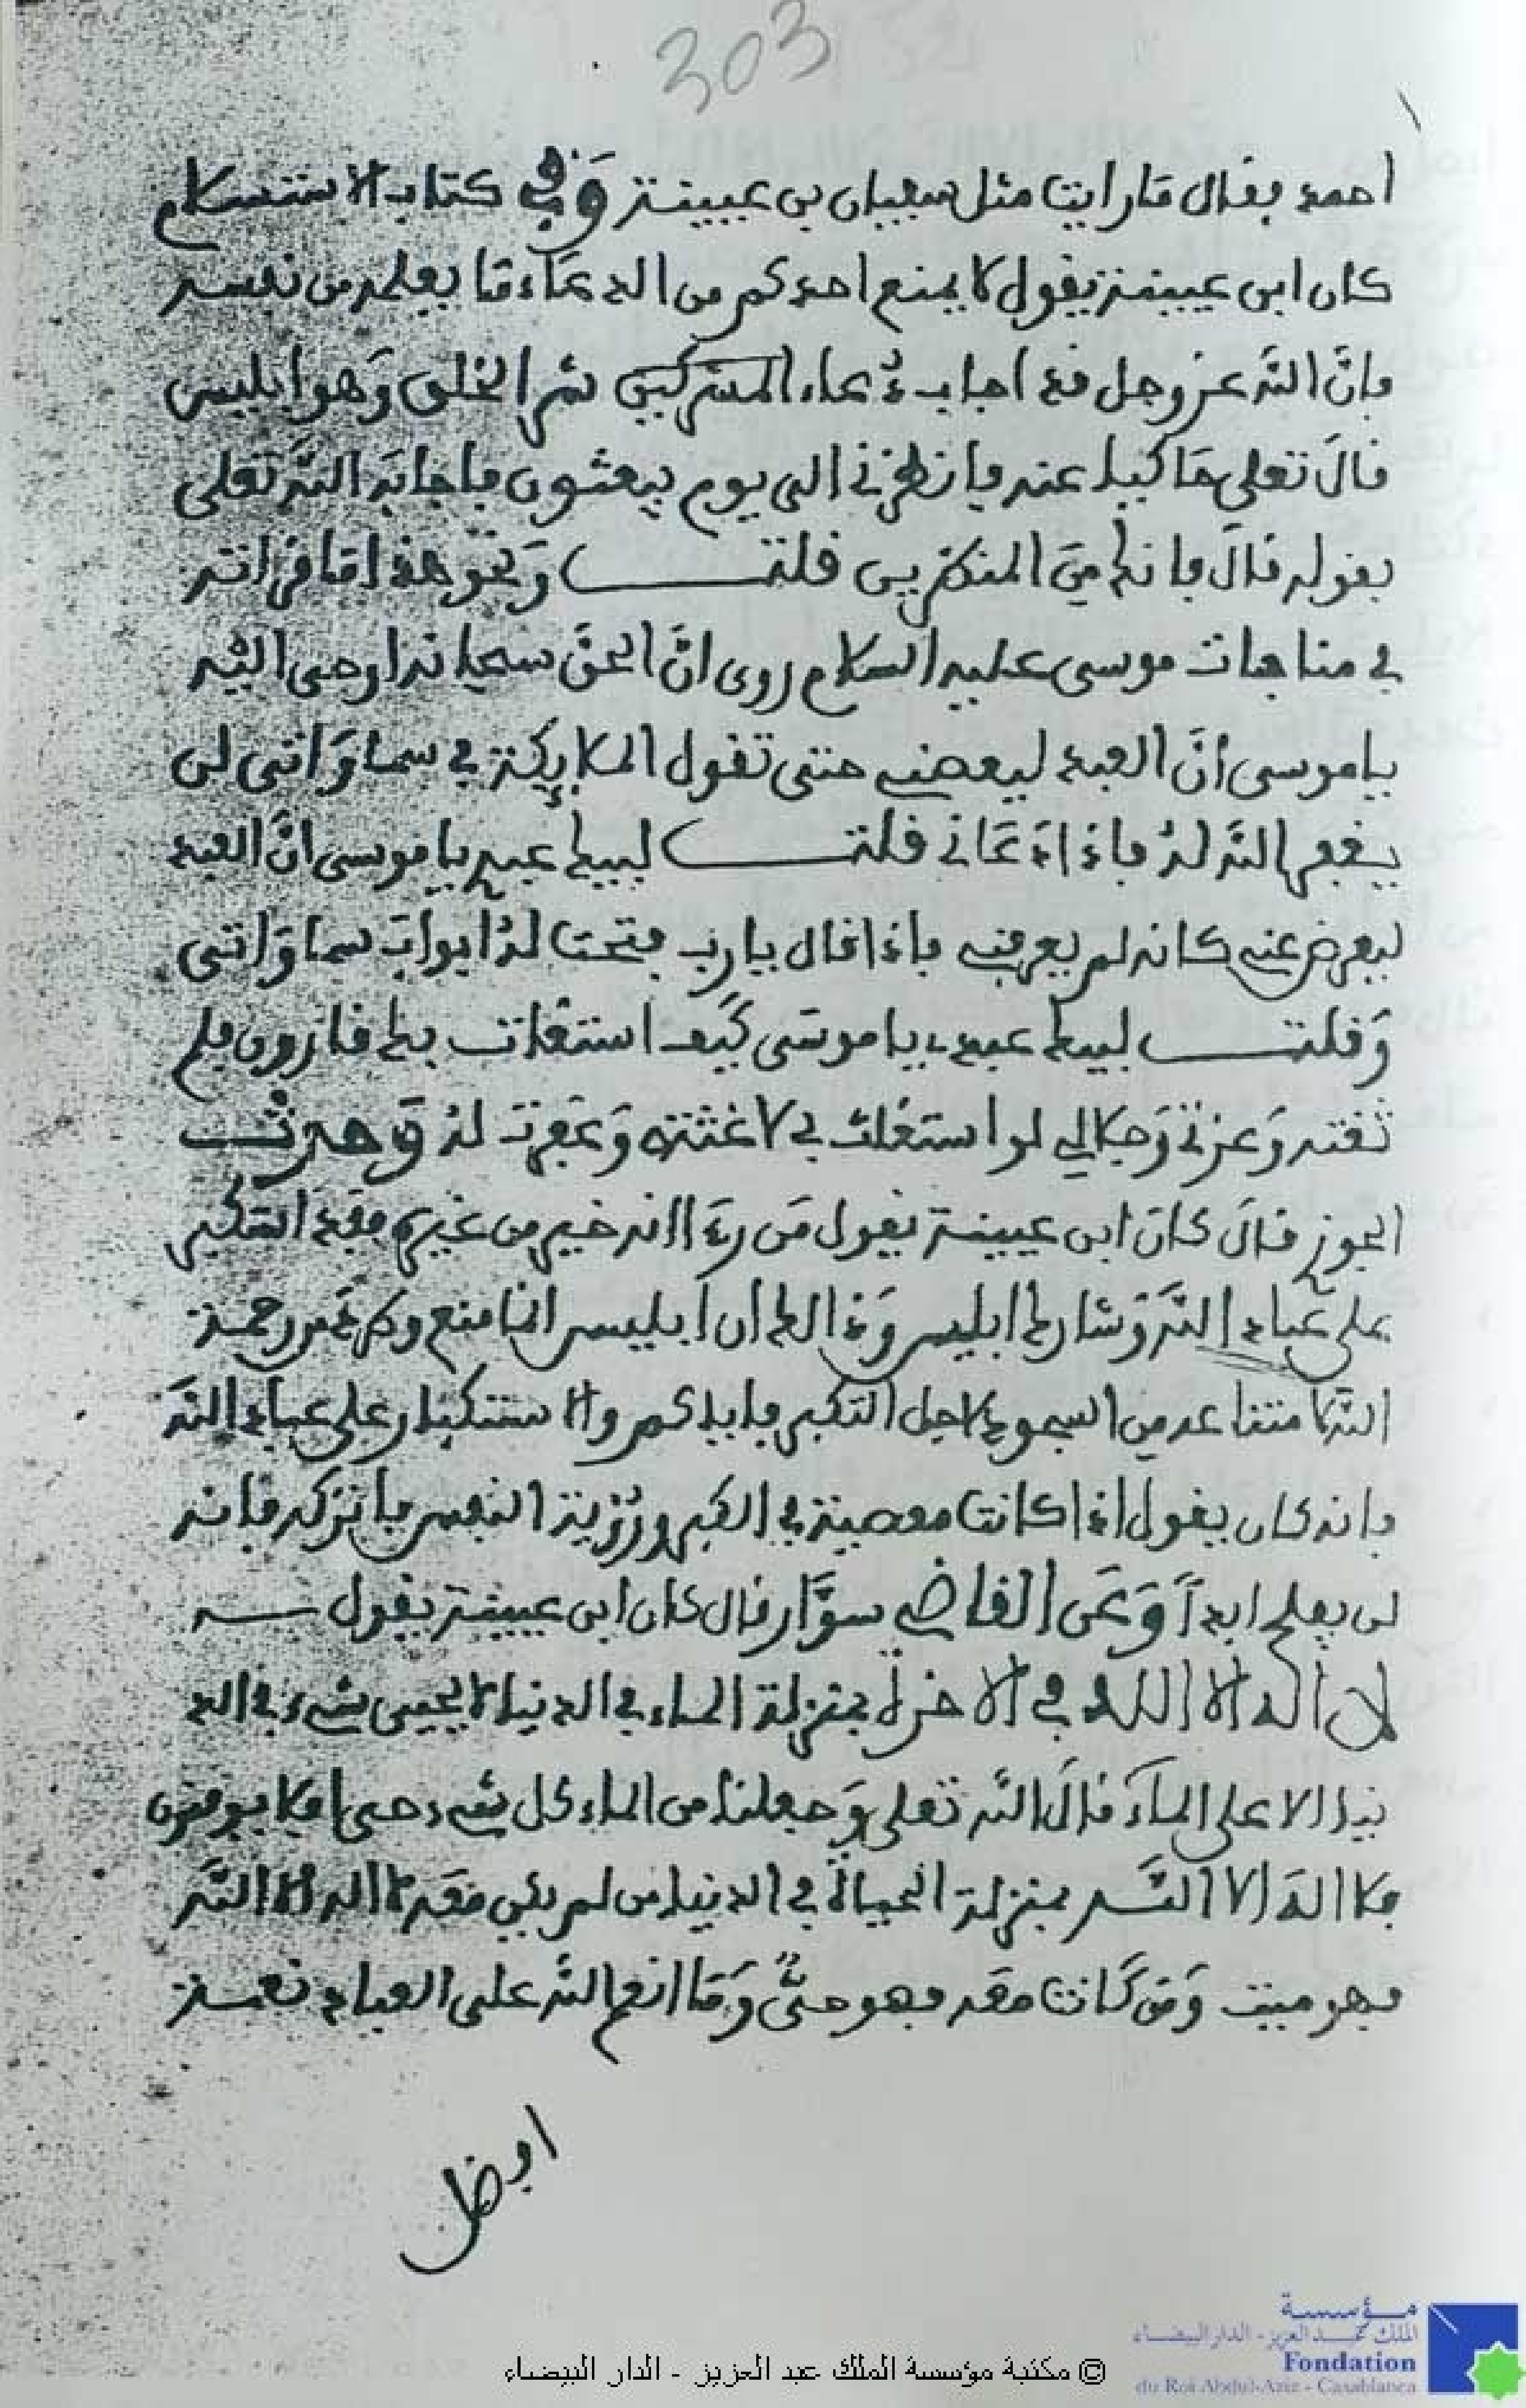 303
احمد بفال ما رايت مثل سفيان بن عيينة وَفي كتاب الاستسلام
كان ابن عيينة يقول لا يمنع احدكم من الدعاء ما يعلمه من نفسه
فانَّ اللَّه عز وجل قد اجاب دُعاء المشركين شر الخلق وَهو ابليس
قالَ تعلى حَاكيا عنه فانظرني الى يوم يبعثون فاجابَه اللَّه تعلى
بقوله قالَ فانك مِنَ المنظرين قلت وَنحو هذا ما قرانه
في مناجات موسى عليه السلام روى انَّ الحقَّ سبحانه اوحى اليه
يا موسى انَّ العبد ليعصني حتى تقول الملايكة في سماوَاتى لن
يغفر اللَّه لهُ فاذا دَعَاني قلت لبيك عبدي يا موسى انَّ العبد
ليعرض عني كانه لم يعرفني فاذا قال يا رب فتحت لهُ ابوابَ سماوَاتى
وَقلت لبيك عبدي يا موسَى كَيف استغاث بك قارون فلم
تغثه وَعزتي وَجلالي لو استغاث بي لاغثته وَغفرت لهُ وَحدث
الجوز قالَ كانَ ابن عيينة يقول مَن رءَا انه خير من غيره فقد استكبر
على عباد اللَّه وَشارك ابليس وَذالك ان ابليس انما منع
اللَّه لامتناعه من السجود لاجل التكبر فاياكم والاستكبار على عباد اللَّه
فانه كان يقول اذا كانت معصية في الكبر ورؤية النفس
لن يفلح ابداً وَعَن القاضي سوَّار قال كان ابن عيينة يقول
لا اله الا الله في الاخرة بمنزلة الماء في الدنيا لا يحيى شيء في الد
نيا الا على الماء قالَ اللَّه تعلى وَجعلنا من الماء كل شيء حى افلا يومنون
فلا الهَ الا اللَّه بمنزلة الحياة في الدنيا من لم يكن معَه لا اله الا اللَّه
فهو ميت وَمَن كَانت معَه فهو حىٌّ وَمَا انعم اللَّه على العباد نعمة
افضل
© مكتبة مؤسسة الملك عبد العزيز - الدار البيضاء
مؤسسة
الملك عبد العزيز - الدار البيضاء
Fondation
du Roi Abdul-Aziz - Casablanca